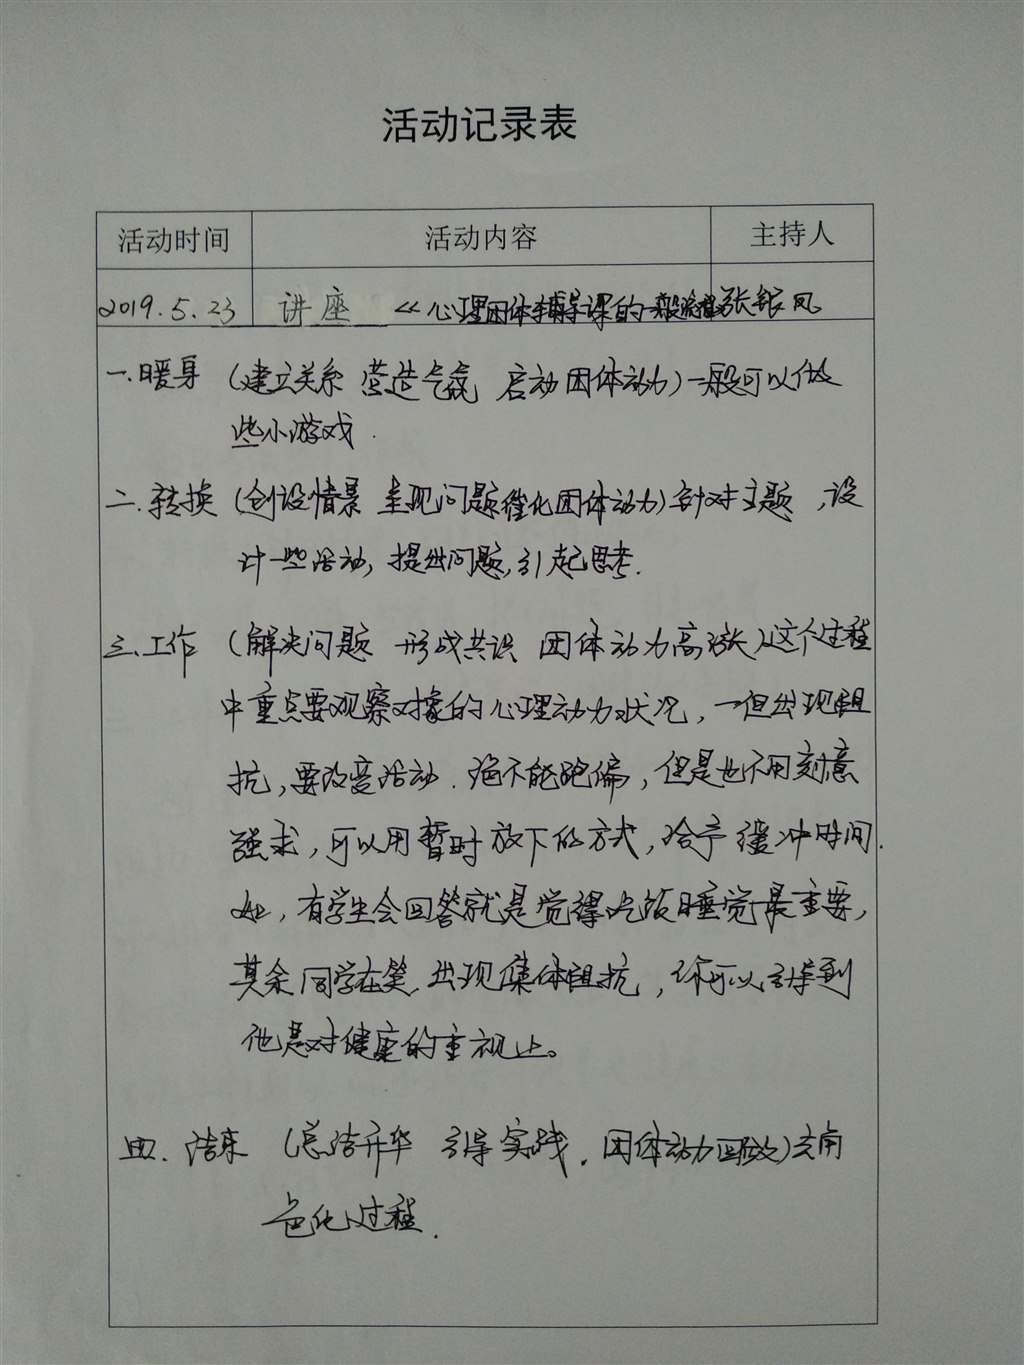 活动记录表
活动时间 活动内容 主持人
2019.5.23 讲座 《心理团体辅导课的一般流程 张银凤
一、暖身 (建立关系 营造气氛 启动团体动力)一般可以做
些小游戏.
二、转换 (创设情景 呈现问题催化团体动力)针对主题,设
计一些活动,提出问题,引起思考.
三、工作 (解决问题 形成共识 团体动力高涨)这个过程
中重点要观察对象的心理动力状况,一但出现阻
抗,要改变活动.绝不能跑偏,但是也不用刻意
强求,可以用暂时放下的方式,给予缓冲时间.
如,有学生会回答就是觉得吃饭睡觉最重要,
其余同学在笑.出现集体阻抗,你可以引导到
他是对健康的重视上。
四.结束 (总结升华 引导实践.团体动力回放)去角
色化过程.